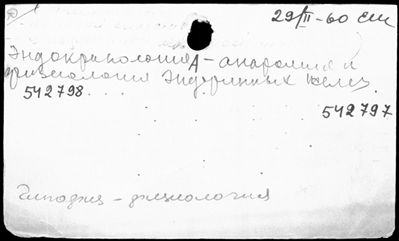 29/II-60 см
Эндокринология А - анатомия и
физиология Эндокринных желез.
542798
542797
- физиология